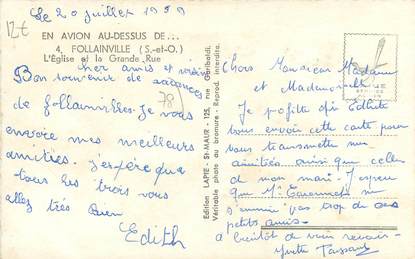 Le 20 juillet 1959
12€
EN AVION AU-DESSUS DE...
4. FOLLAINVILLE (S.-et-O.)
L'Église et la Grande Rue
cher amis et voisin
Bon souvenir de vacances
78
de follainvilles. Je vous
envoye mes meilleurs
amitiés. j'espère que
tous les trois vous
allez très bien
Edith
Edition LAPIE - St-MAUR - 125, rue Garibaldi.
Véritable photo au bromure - Reprod. interdite.
Chers Monsieur Madame
et Mademoiselle
Je profite qu'Edhite
vous envoi cette carte pour
vous transmettre mes
amitiés ainsi que celles
de mon mari. J'espère
que Mr ne
s'ennuie pas trop de ses
petits amis.
a bientôt de vous revoir
Yvette